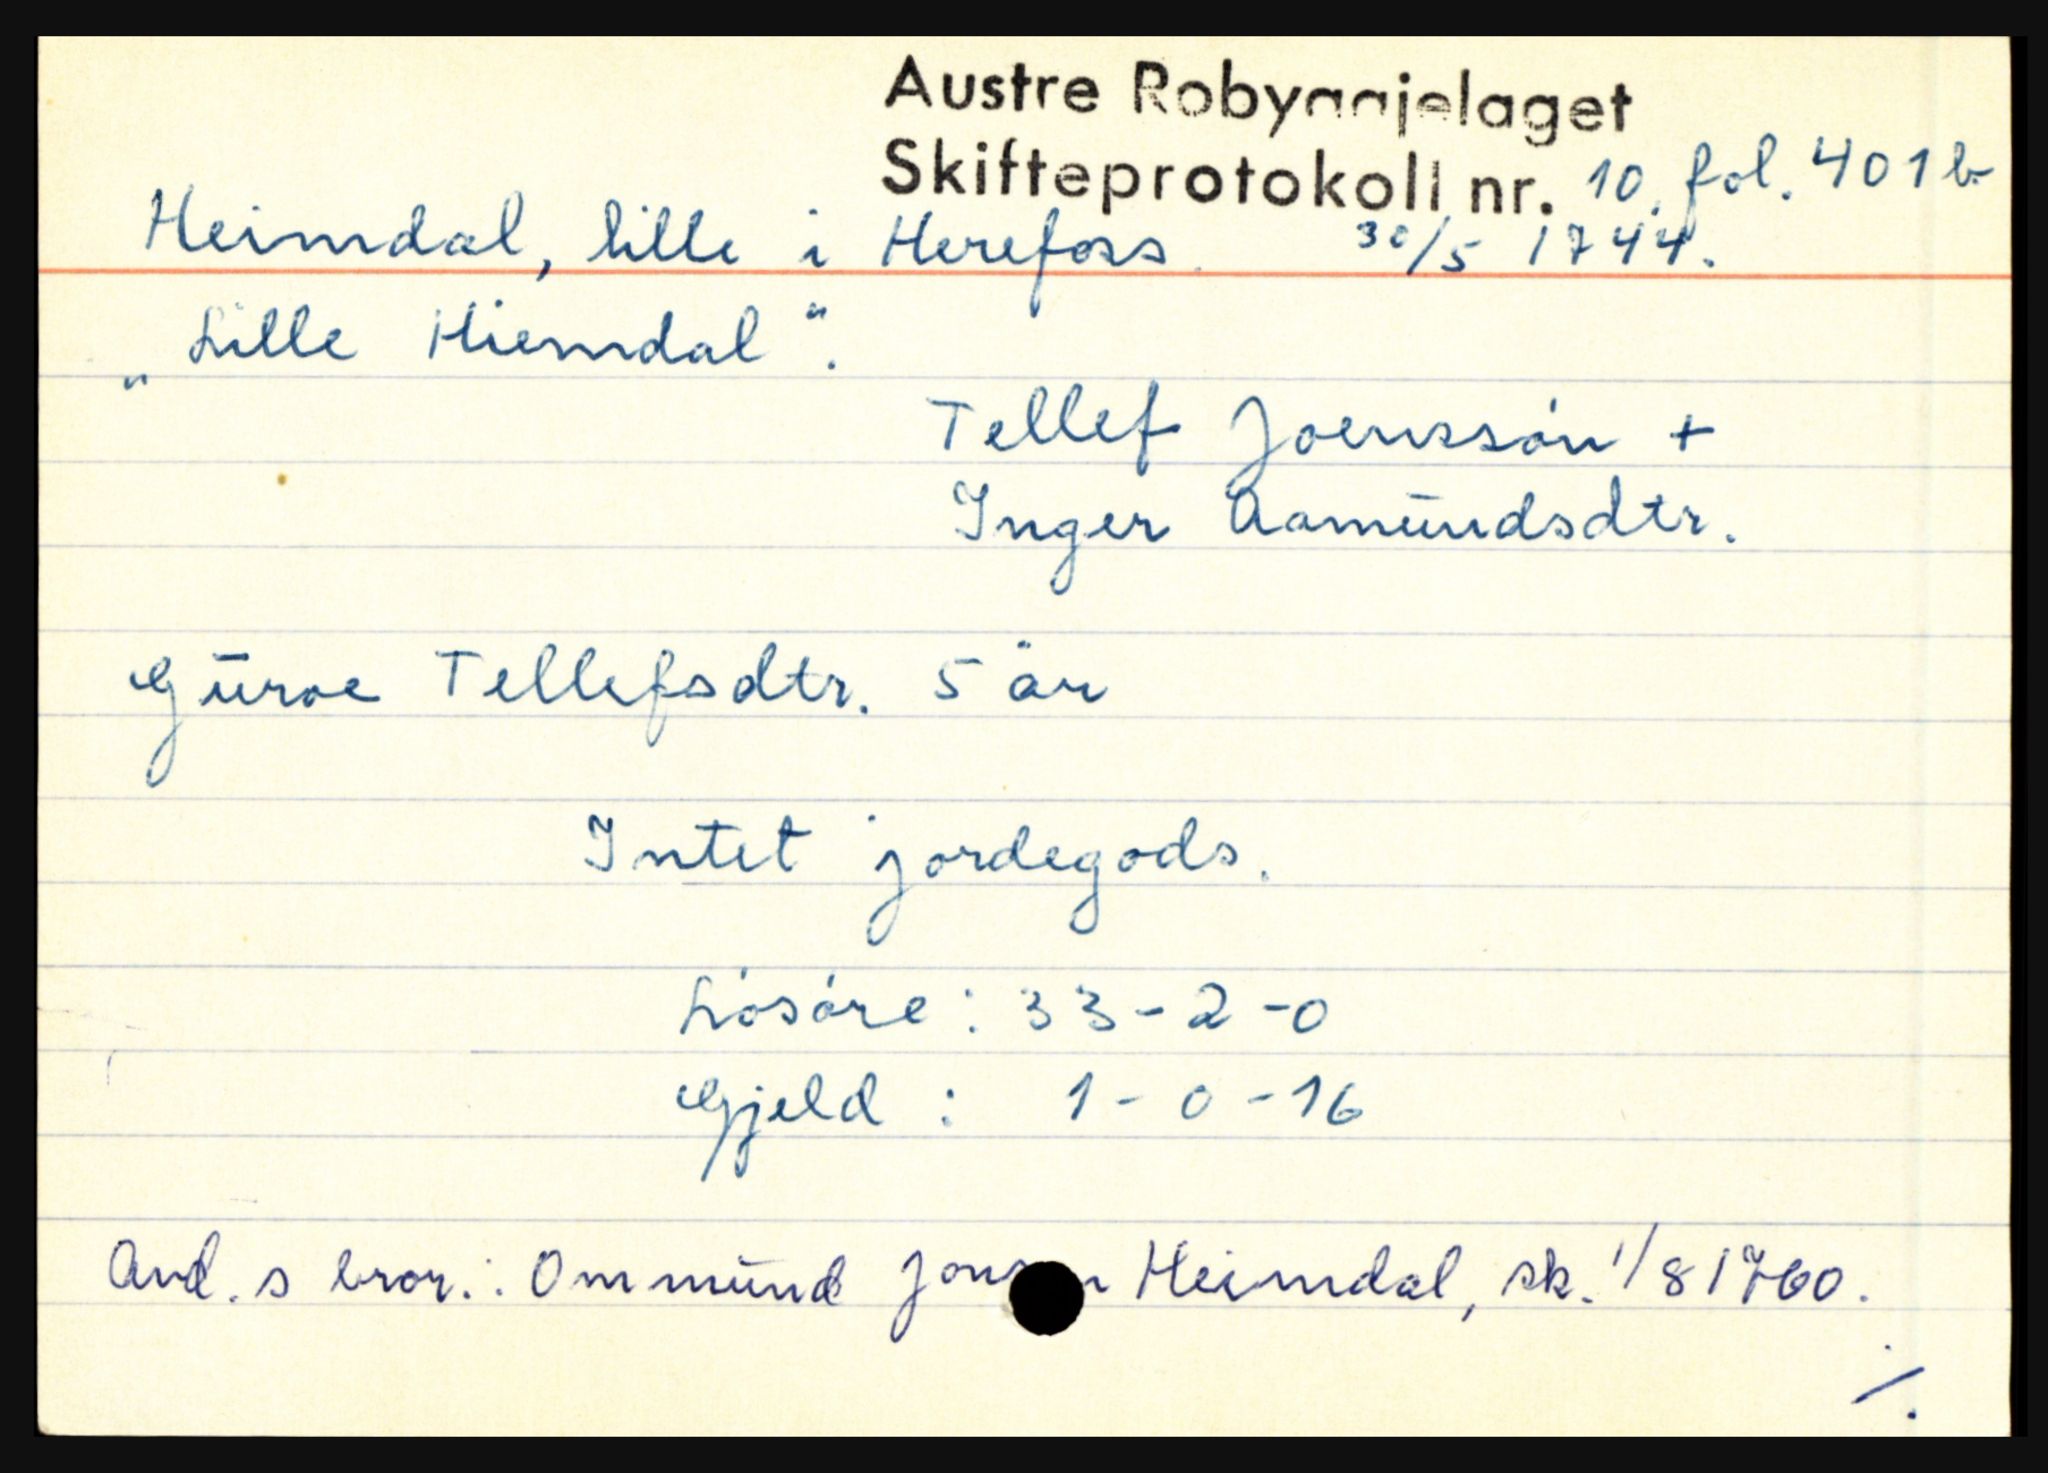 Austre Robyggjelaget
Skifteprotokoll nr. 10, fol. 401 b.
Heimdal, lille i Herefoss. 30/5 1744.
„Lille Hiemdal".
Tellef Joenssón +
Inger Aamundsdtr.
Guroe Tellefsdtr. 5 år
Intet jordegods.
Lósóre: 33-2-0
Gjeld: 1-0-16
Avd. s bror.: Ommund Heimdal, sk. 1/8 1760.